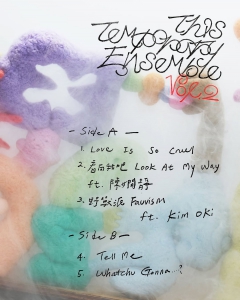 This
Temporary
Ensemble
Vol.2
- Side A -
1. Love Is So Cruel
2. 看我吧 Look At My Way
ft. 陳嫺靜
3. 野獸派 Fauvism
ft. Kim Oki
- Side B -
4. Tell Me
5. Whatchu Gonna..?